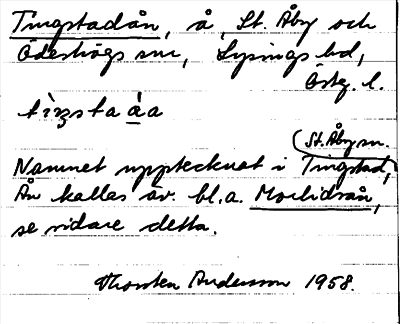 Tingstadån, å, St. Åby och
Ödeshögs snr, Lysings hd,
Östg. l.
tìŋsta a̱a
(St. Åby sn.
Namnet upptecknat i Tingstad,
Ån kallas äv. bl.a. Morlidsån,
se vidare detta.
Thorsten Andersson 1958.